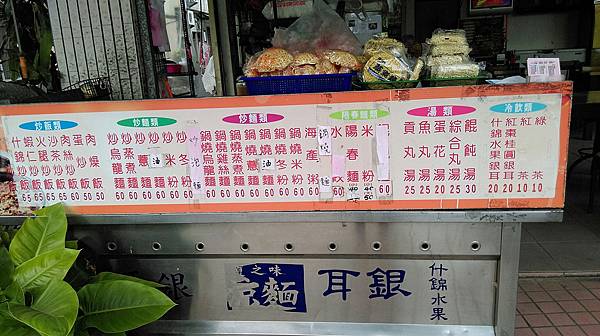 炒飯類
什錦飯 65
蝦仁飯 65
火腿飯 50
沙茶飯 50
肉絲飯 50
蛋炒飯 50
肉燥飯 50
炒麵類
炒烏龍麵 60
炒蒸煮麵 60
炒意麵 60
炒油麵 60
炒米粉 60
炒冬粉 60
炒麵類
鍋燒烏龍麵 60
鍋燒雞絲麵 60
鍋燒蒸煮麵 60
鍋燒意麵 60
鍋燒油麵 60
鍋燒米粉 60
鍋燒冬粉 60
海產粥 60
鍋燒
陽春麵類
陽春麵
米粉
60
湯類
貢丸湯 25
魚丸湯 25
蛋花湯 25
綜合丸湯 25
餛飩湯 30
冷飲類
什錦水果銀耳 20
紅棗桂圓銀耳 20
紅茶 10
綠茶 10
之味
麵
銀
耳銀
什錦水果